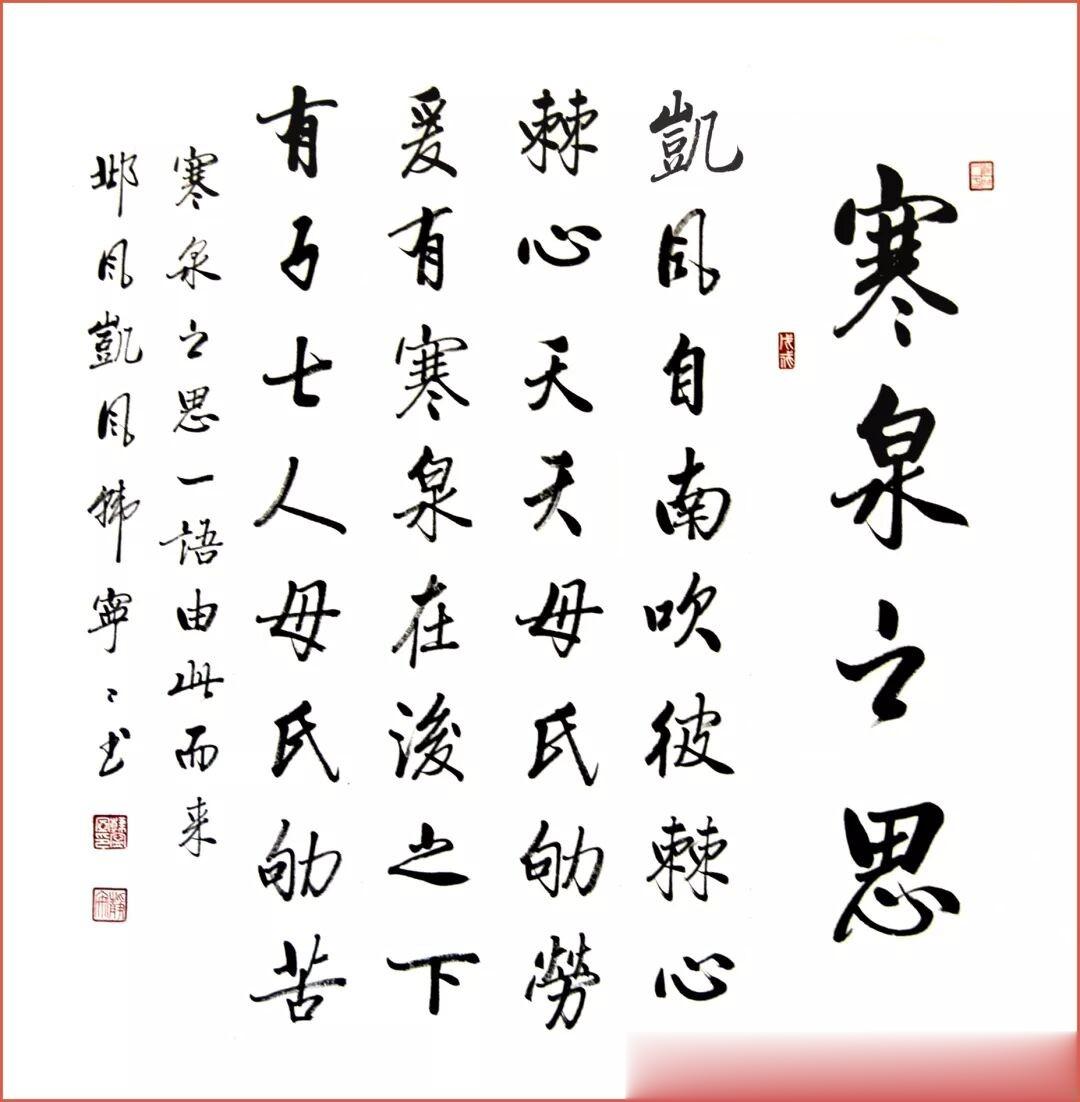 寒泉之思
戊戌
凱風自南吹彼棘心
棘心夭夭母氏劬勞
爰有寒泉在浚之下
有子七人母氏劬苦
寒泉之思一語由此而来
邶風凱風韩寧〻书